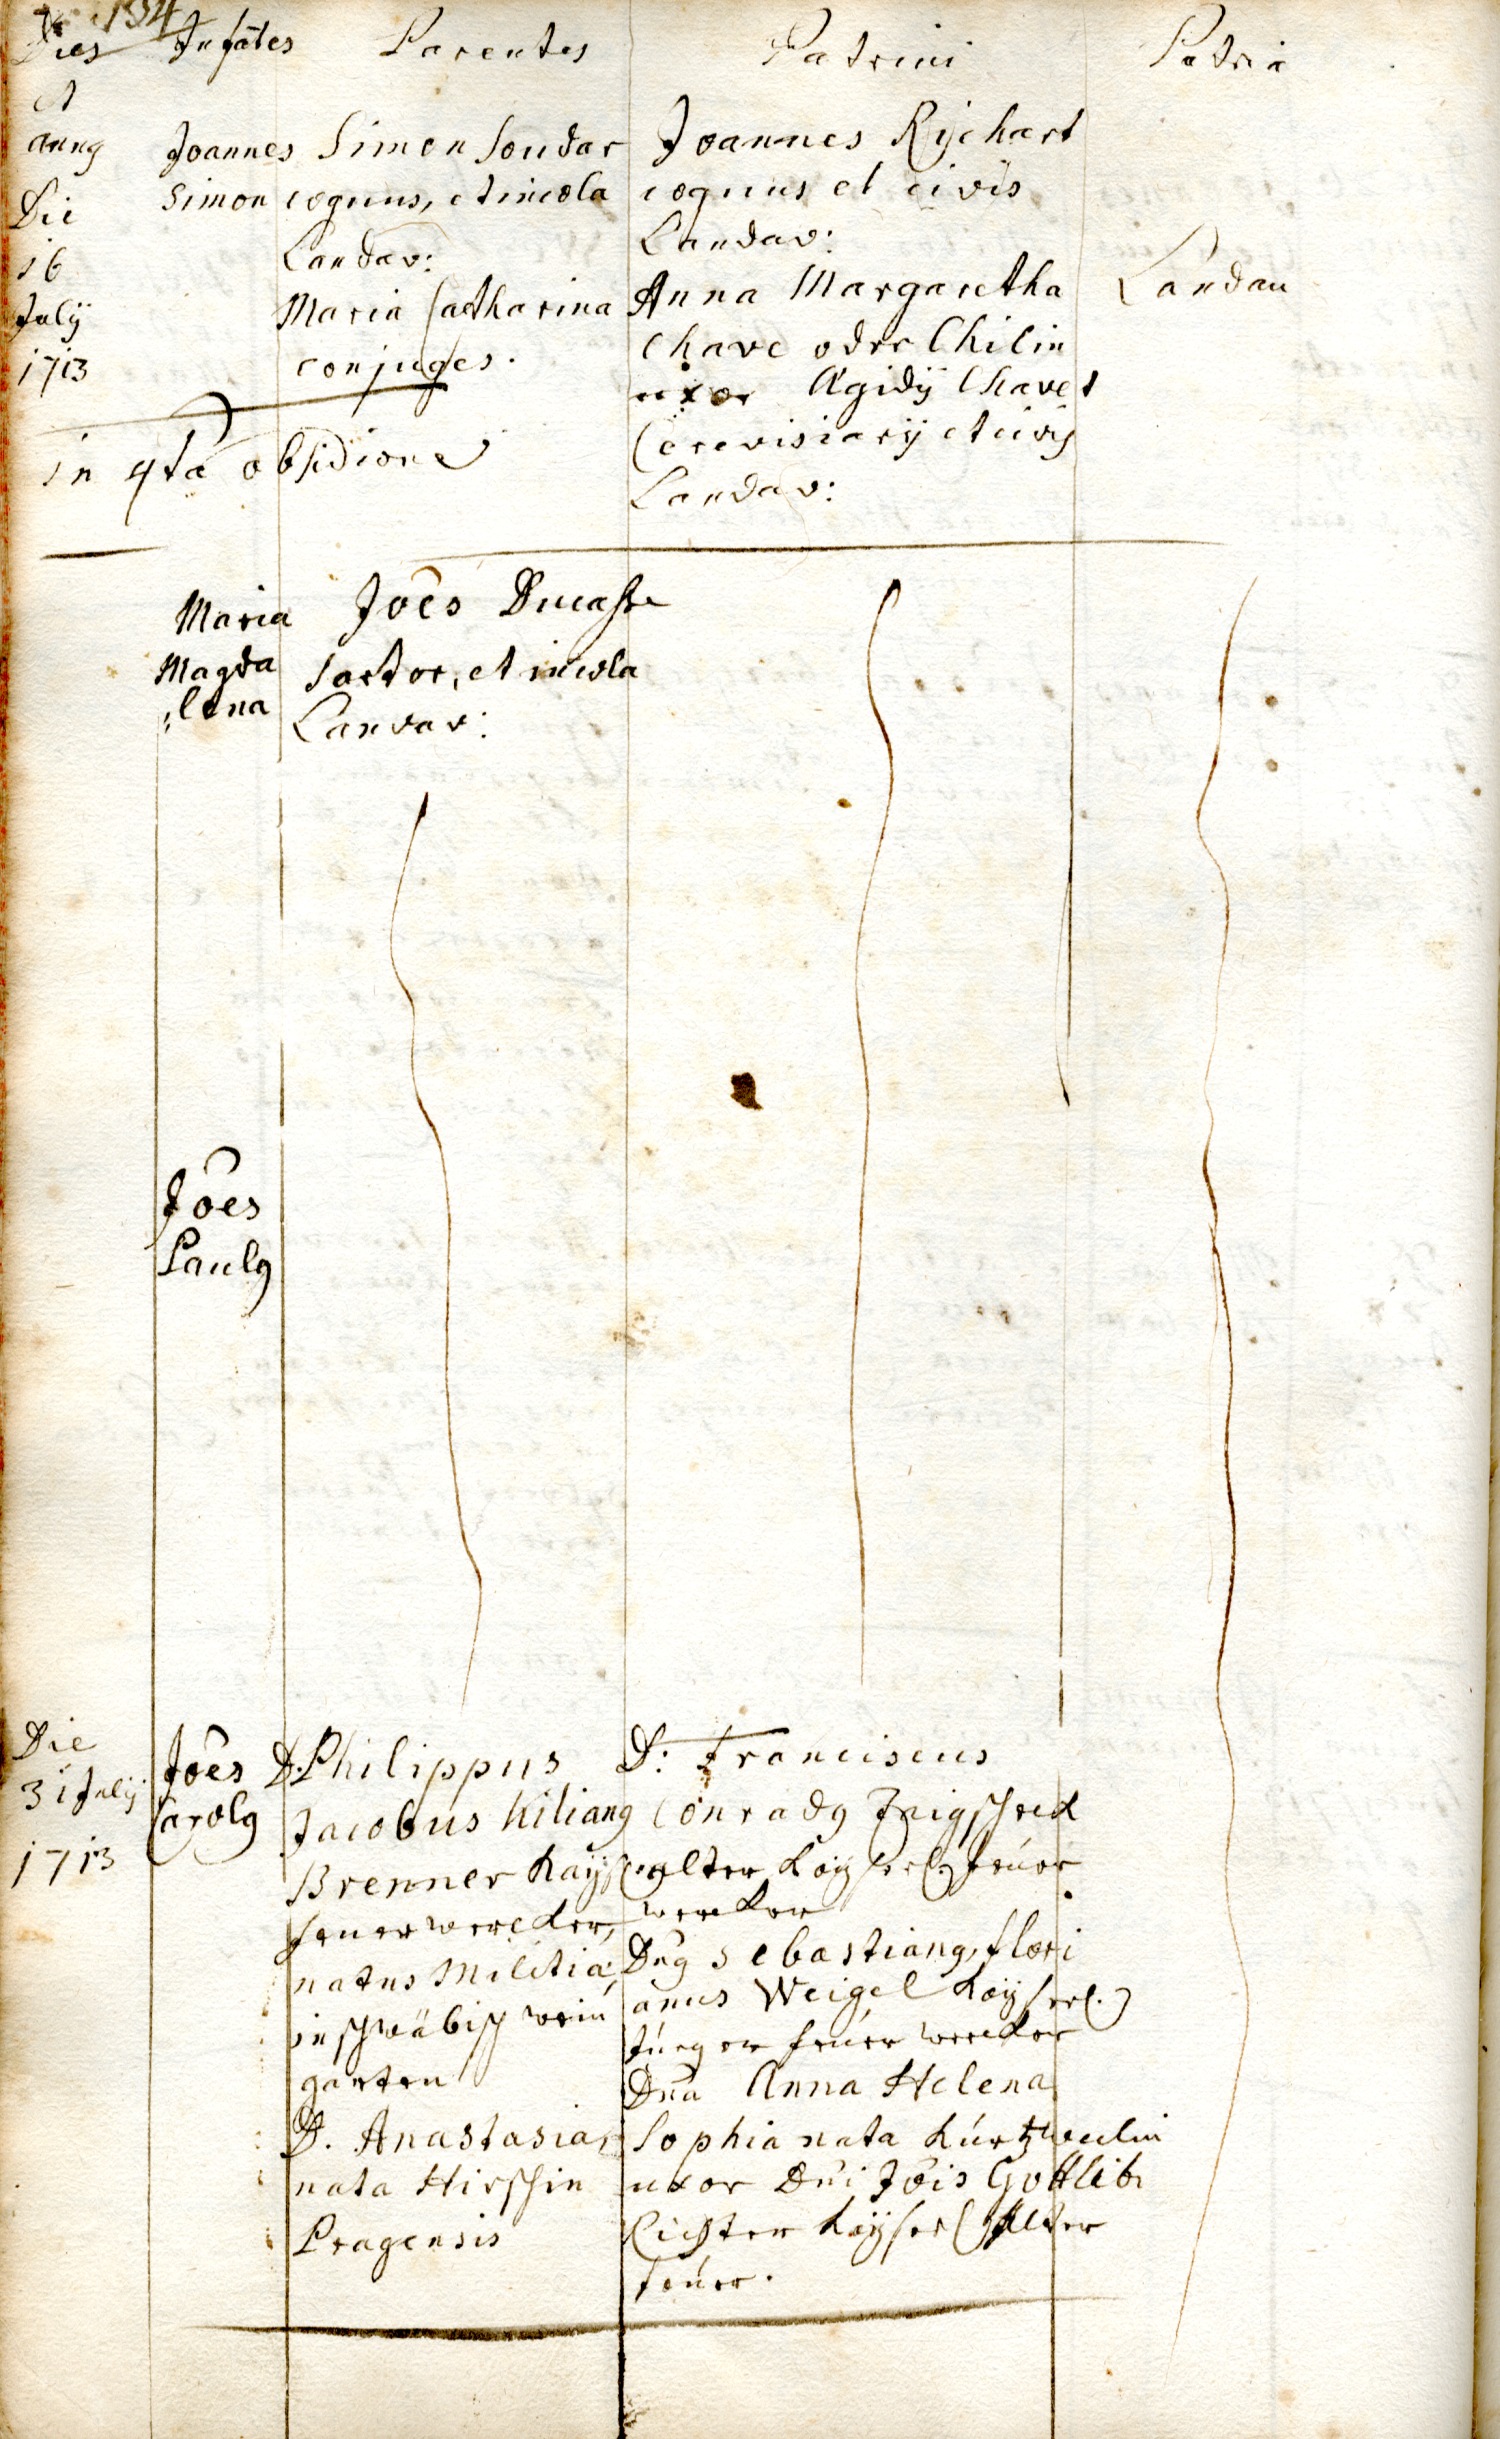 134
Dies
et
annq
Infātes
Parentes
Patrini
Patria
Die
16
July
1713
Joannes
Simon
Simon Soudar
coquus, et incola
Landav:
Maria Catharina
conjuges.
Joannes Rijchart
coquus et civis
Landav:
Anna Margaretha
Chave oder Chilin
uxor Ægidÿ Chavet
Cerevisiarÿ et civis
Landav:
Landau
in 4ta obsidione
Maria
Magda
:lena
Jōēs Ducasse
sartor, et incola
Landav:
Jōēs
Paulq
Die
31 July
1713
Jōēs
Carolq
D. Philippus
Jacobus Kilianq
Brenner Kaÿs.
feuerwercker,
natus Militia:
in schwäbisch wein
garten
D. Anastasia,
nata Hirschin
Pragensis
D: Franciscus
Conradq
alter Kaÿserl. feüer
wercker
Dnq Sebastianq, flori
anus Weigel Kaÿserl.
Jünger feüer wercker
Dna Anna Helena
Sophia nata
uxor Dni Jōis Gottlib
Richter Kaÿserl Alter
feüer.